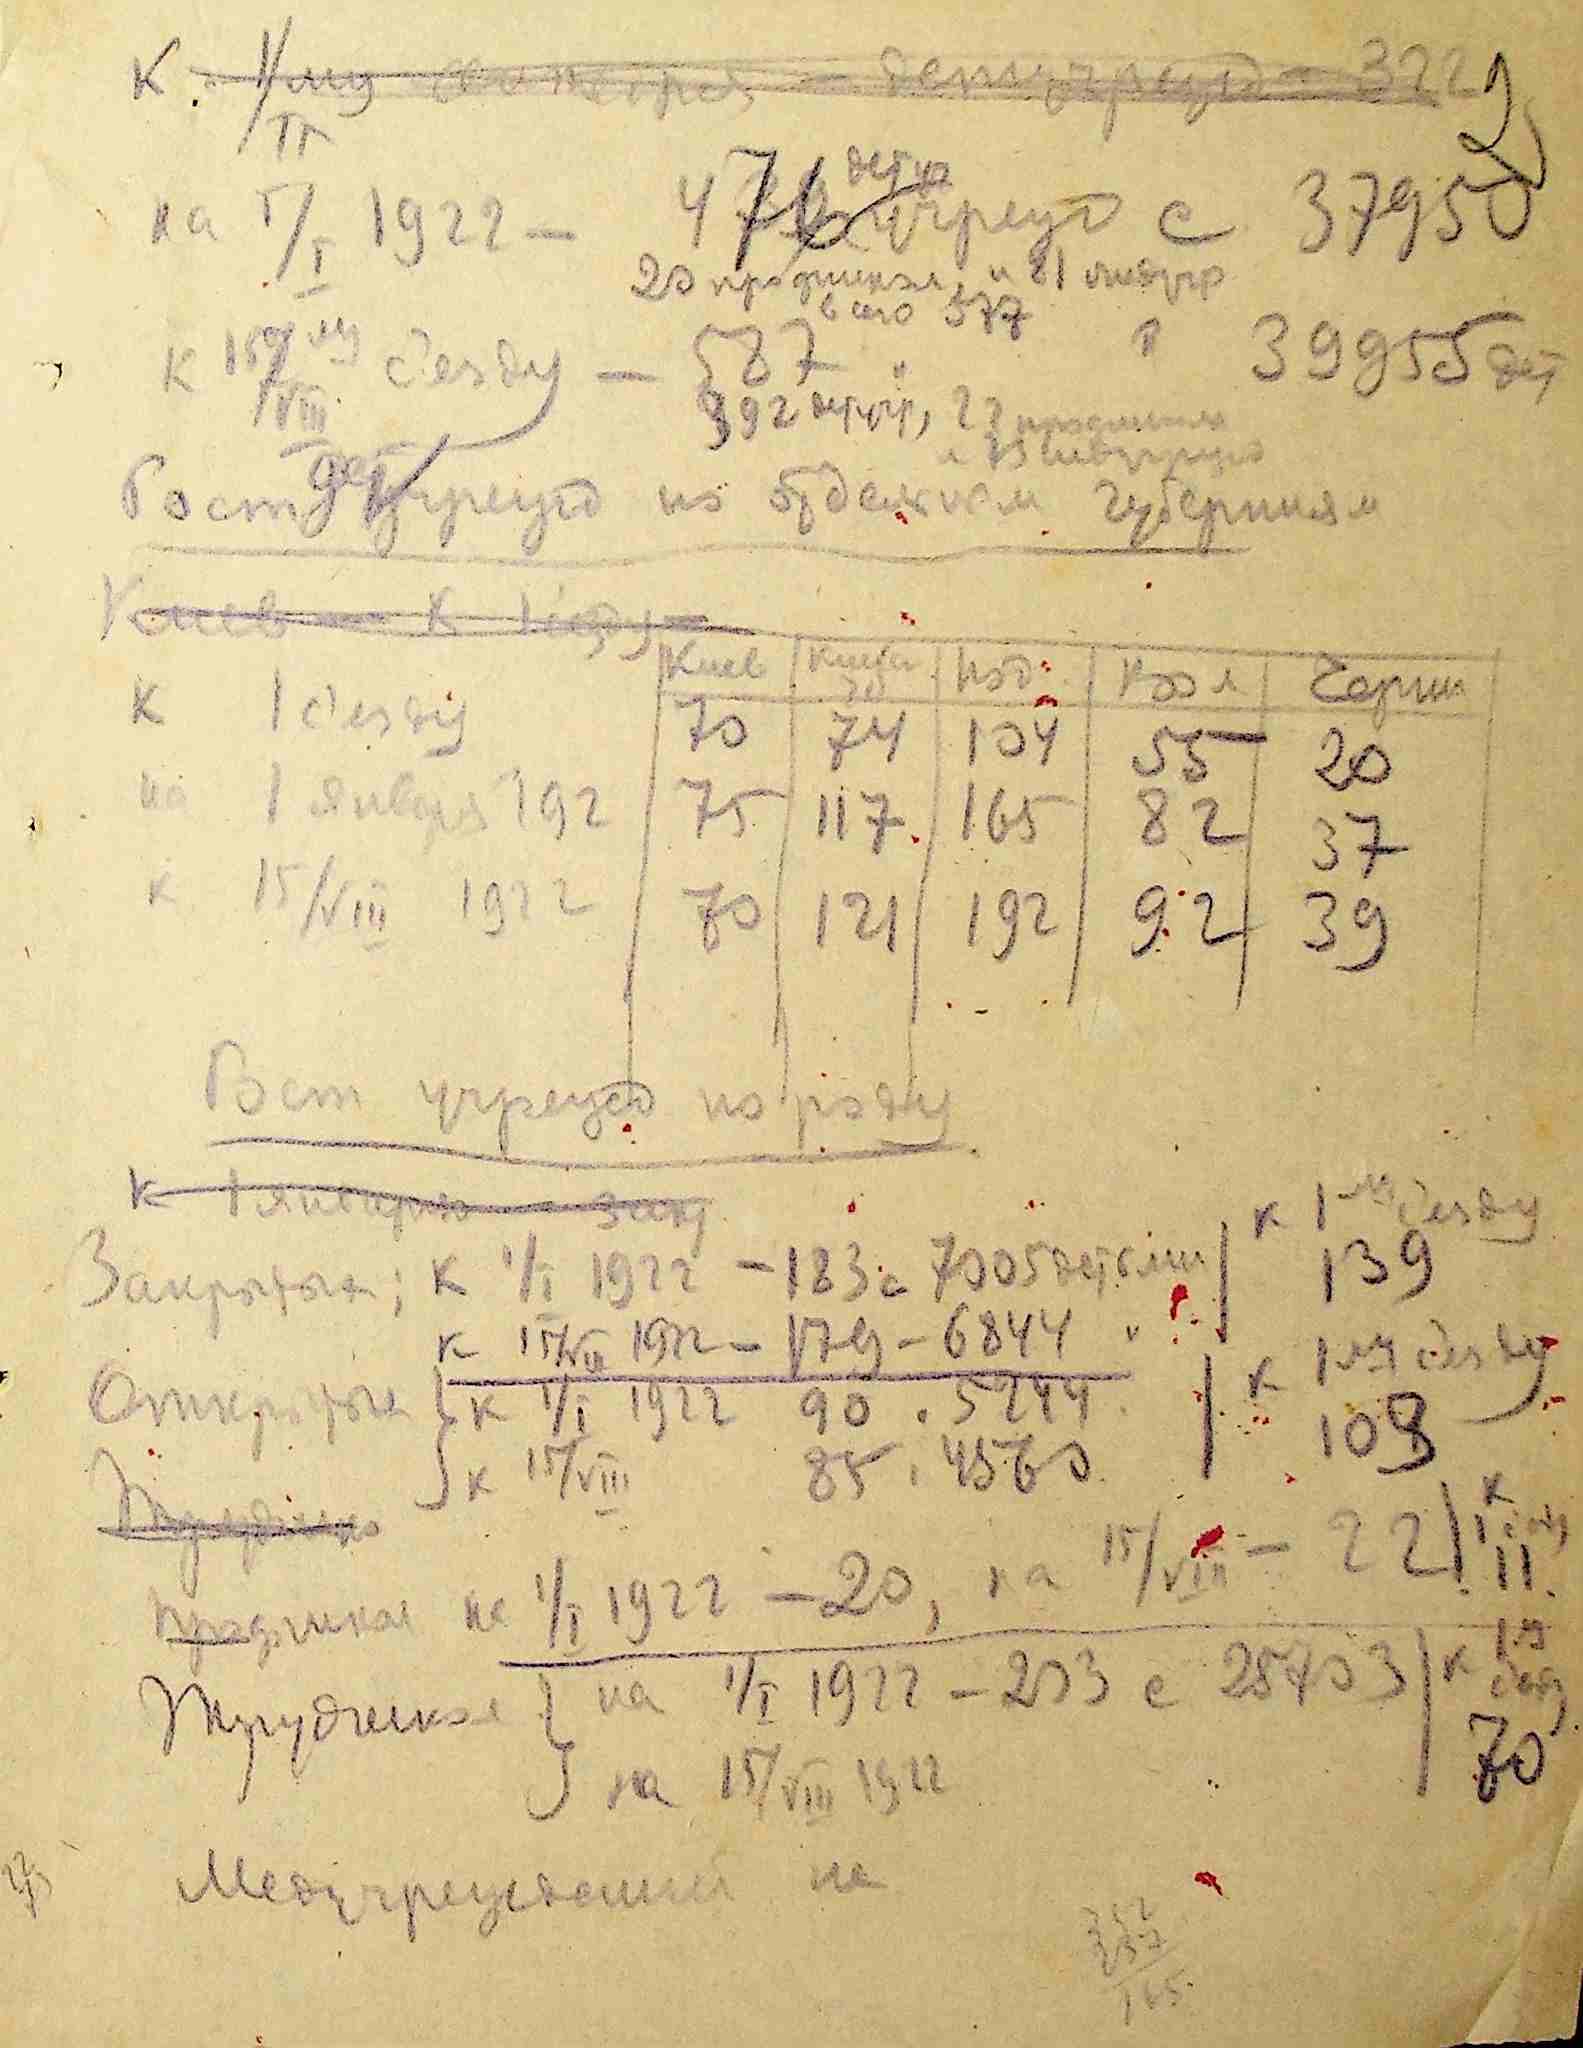 2
на 1/I 1922 – 476 дет учрежд с 37950
20 профшкол и 81 медучр
всего 577
к 15/VIII с'езду – 587 " " 39955 дет
392 детучр, 22 профшкол
Рост дет учрежд по отдельным губерниям
Киев Киевгуб Под. Вол Черниг
к 1 с'езду 70 74 104 55 20
на 1 января 192 75 117 165 82 37
к 15/VIII 1922 70 121 192 92 39
Рост учрежд по роду
к 1 января закр
Закрытых; к 1/I 1922 – 183 с 7005 детьми к 1му с'езду 139
к 15/VIII 1922 – 179 – 6844 "
Открытых к 1/I 1922 90 . 5244 к 1му с'езду 109
к 15/VIII 85 . 4560
профшкол на 1/I 1922 – 20, на 15/VIII – 22 к 1 с'езду 11
Трудшкол на 1/I 1922 – 203 с 25703 к 1му с'езду 70
на 15/VIII 1922
Медучреждений на
165